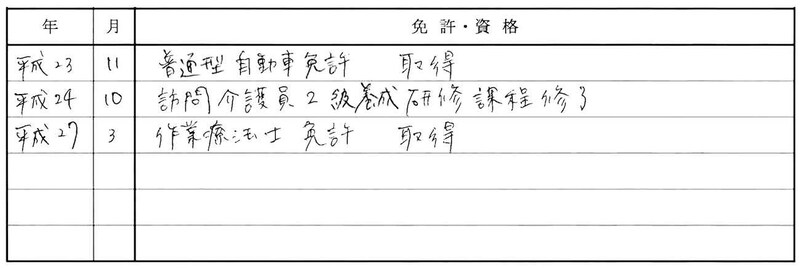 年 月 免許・資格
平成23 11 普通型自動車免許 取得
平成24 10 訪問介護員2級養成研修課程修了
平成27 3 作業療法士免許 取得